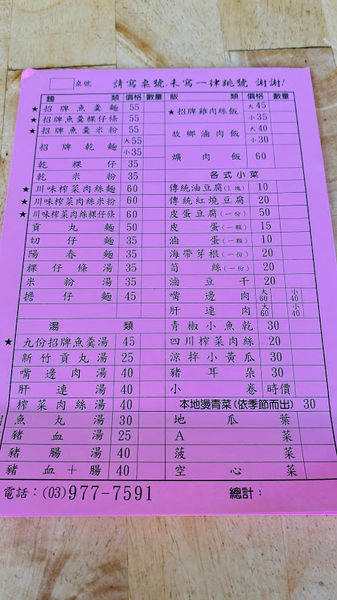 桌號 請寫桌號未寫一律跳號 謝謝!
麵類 價格 數量 飯類 價格 數量
★招牌魚羹麵 55
★招牌魚羹粿仔條 55
★招牌魚羹米粉 55
招牌乾麵 大55 小35
乾粿仔 35
乾米粉 35
★川味榨菜肉絲麵 60
★川味榨菜肉絲米粉 60
★川味榨菜肉絲粿仔條 60
貢丸麵 50
切仔麵 35
陽春麵 35
粿仔條湯 35
米粉湯 35
擔仔麵 45
湯類
★九份招牌魚羹湯 45
新竹貢丸湯 25
嘴邊肉湯 40
肝連湯 40
榨菜肉絲湯 40
魚丸湯 30
豬血湯 25
豬腸湯 40
豬血+腸 40
★招牌雞肉絲飯 大45 小35
故鄉滷肉飯 大40 小30
爌肉飯 60
各式小菜
傳統油豆腐(1塊) 10
傳統紅燒豆腐 20
皮蛋豆腐(一份) 50
皮蛋(一顆) 15
滷蛋(一個) 10
海帶芽根(一份) 20
筍絲(一份) 20
滷豆干 20
嘴邊肉 大60 小40
肝連肉 大60 小40
青椒小魚乾 30
四川榨菜肉絲 20
涼拌小黃瓜 30
豬耳朵 30
小卷 時價
本地燙青菜(依季節而出) 30
地瓜葉
A菜
菠菜
空心菜
電話:(03)977-7591 總計: